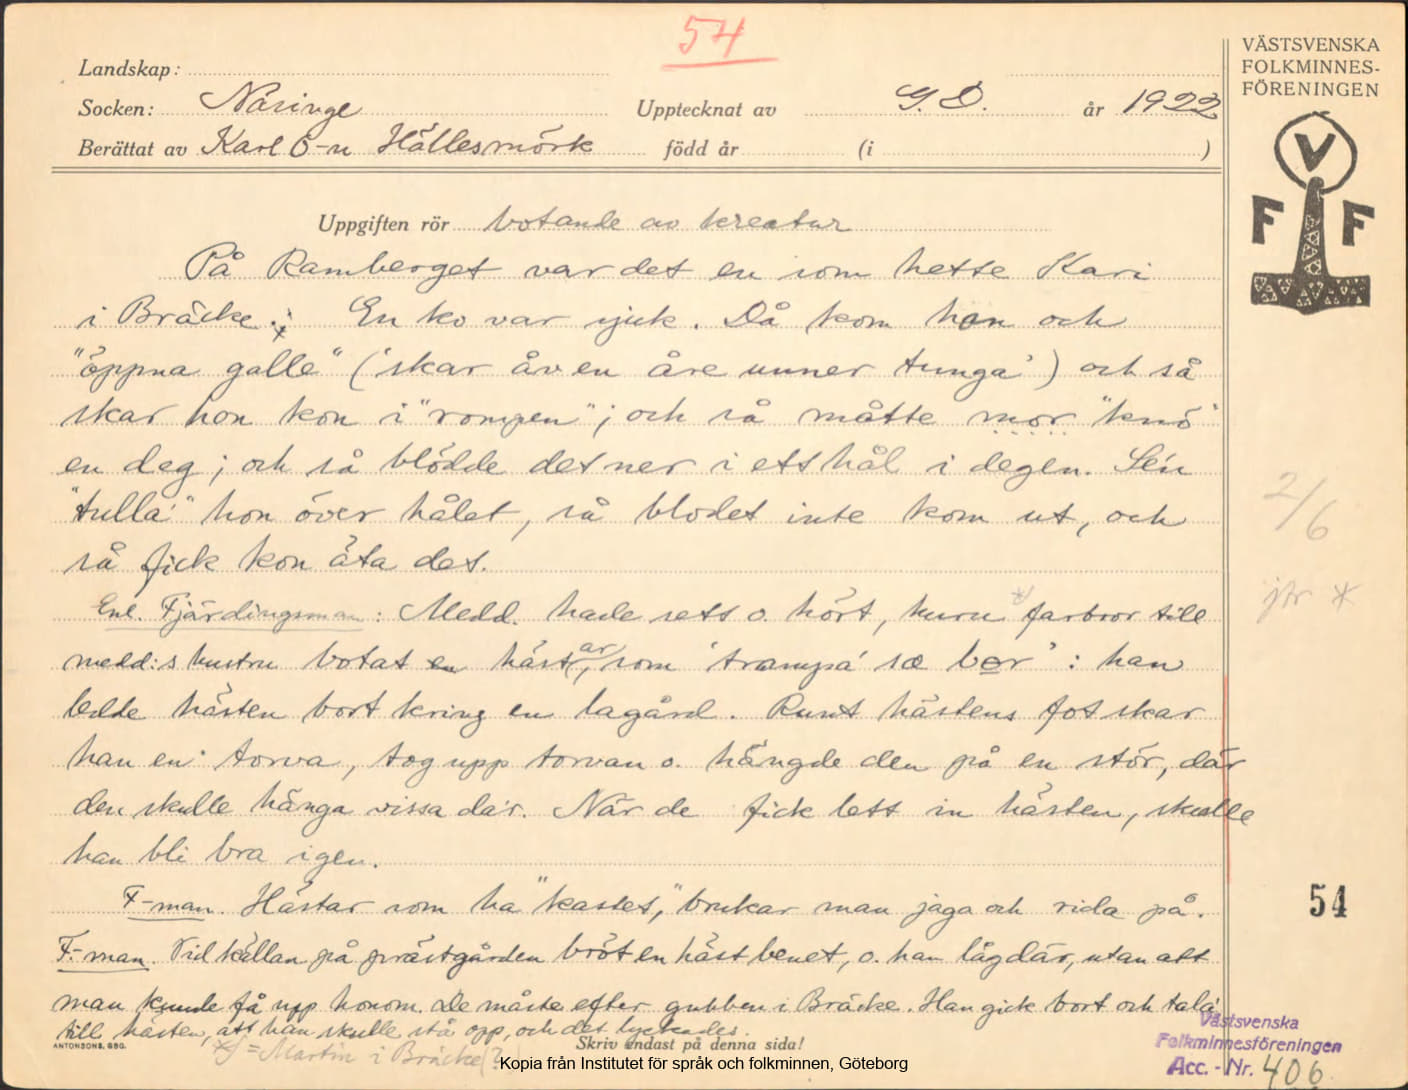 54
VÄSTSVENSKA
FOLKMINNES-
FÖRENINGEN
Landskap:
Socken: Näsinge Upptecknat av G. D. år 1922
Berättat av Karl O-n Hällesmörk född år (i )
V
F F
Uppgiften rör botande av kreatur
På Ramberget var det en som hette Kari
i Bräcke. En ko var sjuk. Då kom hon och
"öppna galle" ('skar åv en åre unner tunga') och så
skar hon kon i "rompen"; och så måtte mor "knö"
en deg; och så blödde det ner i ett hål i degen. Sén
"tulla'" hon över hålet, så blodet inte kom ut, och
så fick kon äta det.
Enl. Fjärdingsman: Medd. hade sett o. hört, huru * farbror till
medd:s hustru botat en hästar, som 'trampa' sæ bor': han
ledde hästen bort kring en lagård. Runt hästens fot skar
han en torva, tog upp torvan o. hängde den på en stör, där
den skulle hänga vissa da'r. När de fick lett in hästen, skulle
han bli bra igen.
F-man. Hästar som ha "kastet," brukar man jaga och rida på.
F-man. Vid källan på prästgården bröt en häst benet, o. han låg där, utan att
man kunde få upp honom. De måste efter gubben i Bräcke. Han gick bort och tala'
till hästen, att han skulle stå opp, och det lyckades.
= Martin i Bräcke?
2/6
jfr *
54
ANTONSONS, GBG.
Skriv endast på denna sida!
Västsvenska
Folkminnesföreningen
Acc. - Nr. 406.
Kopia från Institutet för språk och folkminnen, Göteborg